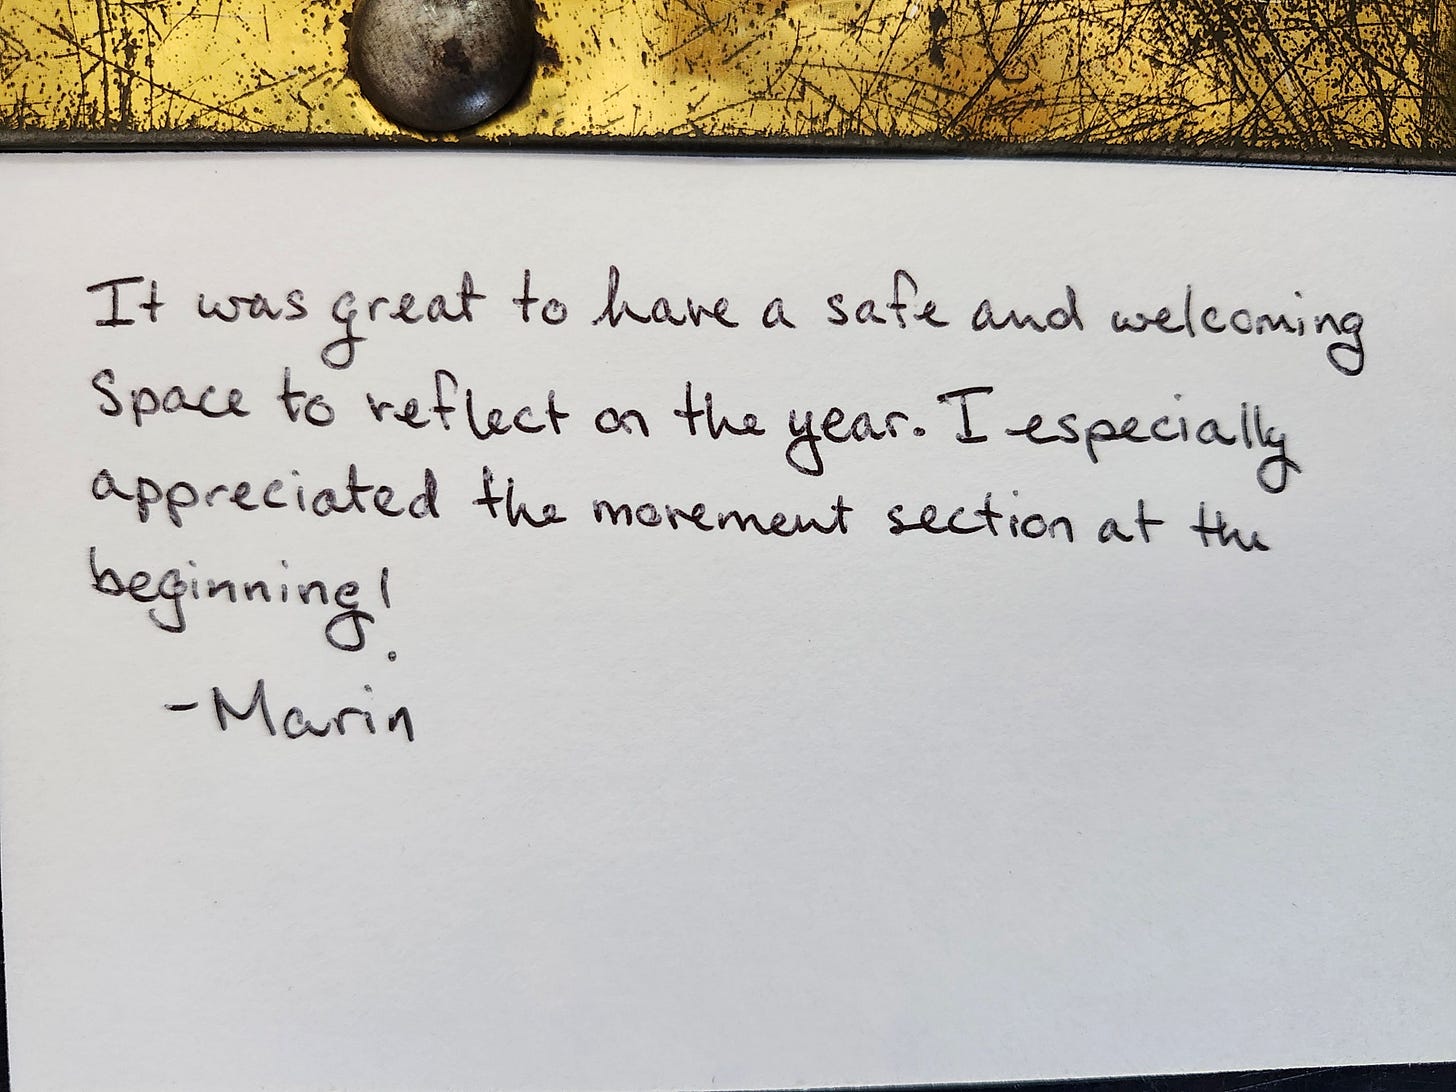 It was great to have a safe and welcoming
space to reflect on the year. I especially
appreciated the movement section at the
beginning!
-Marin